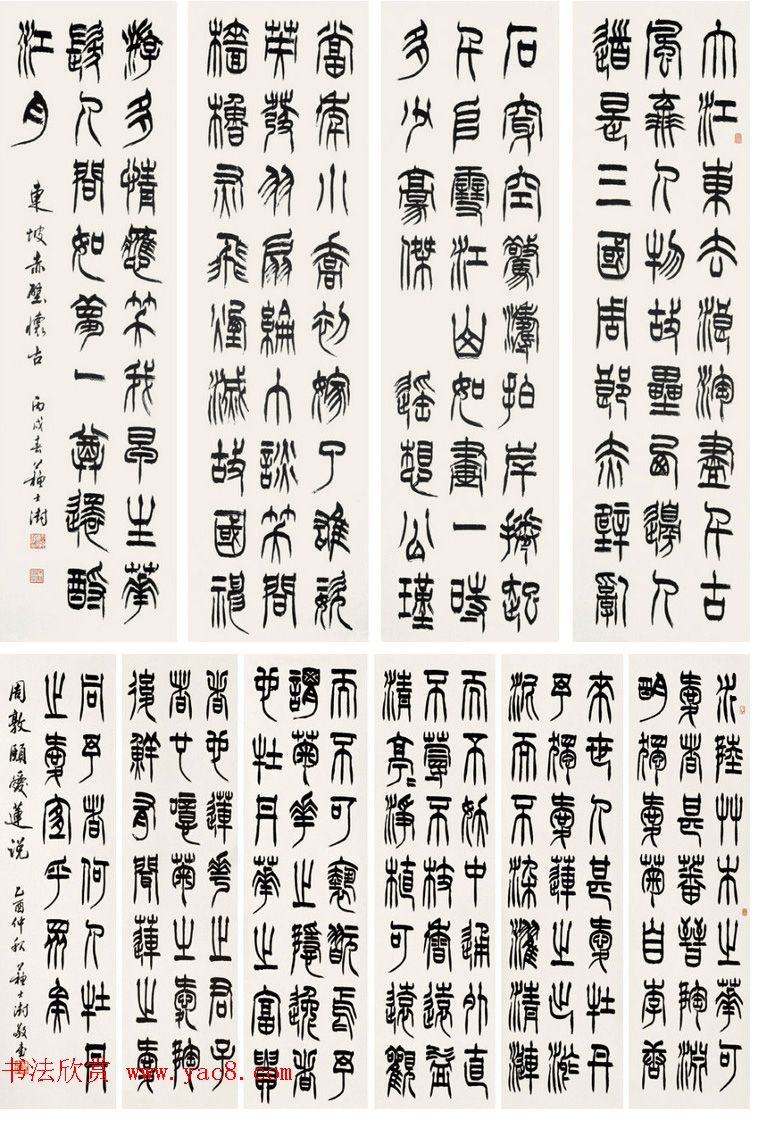 大江東去浪淘盡千古
風流人物故壘西邊人
道是三國周郎赤壁亂
石穿空驚濤拍岸捲起
千堆雪江山如畫一時
多少豪傑 遙想公瑾
當年小喬初嫁了雄姿
英發羽扇綸巾談笑間
檣櫓灰飛煙滅故國神
游多情應笑我早生華
髮人間如夢一尊還酹
江月
東坡赤壁懷古 丙戌春 蘇士澍
水陸艸木之華可
愛者甚蕃晉陶淵
明獨愛菊自李唐
來世人甚愛牡丹
予獨愛蓮之出淤
泥而不染濯清漣
而不妖中通外直
不蔓不枝香遠益
清亭亭淨植可遠觀
而不可褻翫焉予
謂菊華之隱逸者
也牡丹華之富貴
者也蓮花之君子
者也噫菊之愛陶
後鮮有聞蓮之愛
同予者何人牡丹
之愛宜乎眾矣
周敦頤愛蓮说 乙酉仲秋 蘇士澍敬書
书法欣赏 www.yac8.com